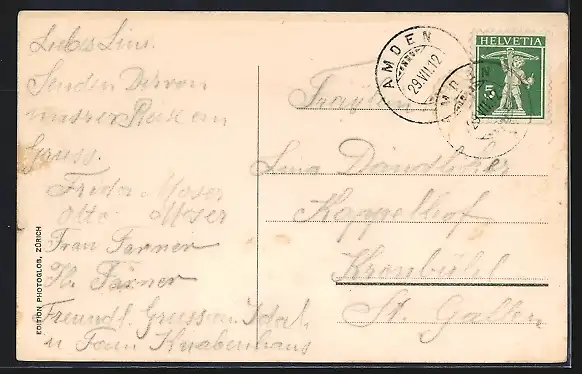 Liebes Lina.
Senden Dir von
unserer Reise ein
Gruss.
Frida Moser
Otto Moser
Frau Farner
H. Farner
Freundl. Gruss von Idal.
u Fam Knabenhans
EDITION PHOTOGLOB, ZÜRICH
AMDEN
29.VII.12
HELVETIA
5
AMDEN
Fräulein
Lina Dändliker
Kappelhof
Kronbühl
St. Gallen